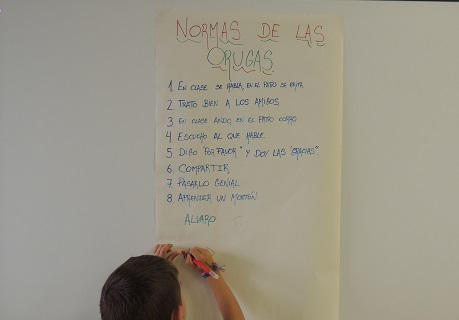 NORMAS DE LAS
ORUGAS
1 EN CLASE SE HABLA, EN EL PATIO SE GRITA
2 TRATO BIEN A LOS AMIGOS
3 EN CLASE ANDO, EN EL PATIO CORRO
4 ESCUCHO AL QUE HABLE
5 DIGO "POR FAVOR" Y DOY LAS "GRACIAS"
6 COMPARTIR
7 PASARLO GENIAL
8 APRENDER UN MONTÓN!
ALVARO